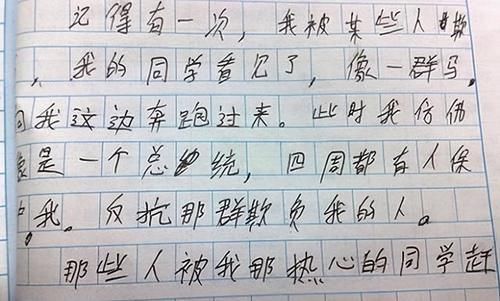 记得有一次，我被某些人欺
，我的同学看见了，像一群马，
向我这边奔跑过来。此时我仿佛
像是一个总统，四周都有人保
护我。反抗那群欺负我的人。
那些人被我那热心的同学赶